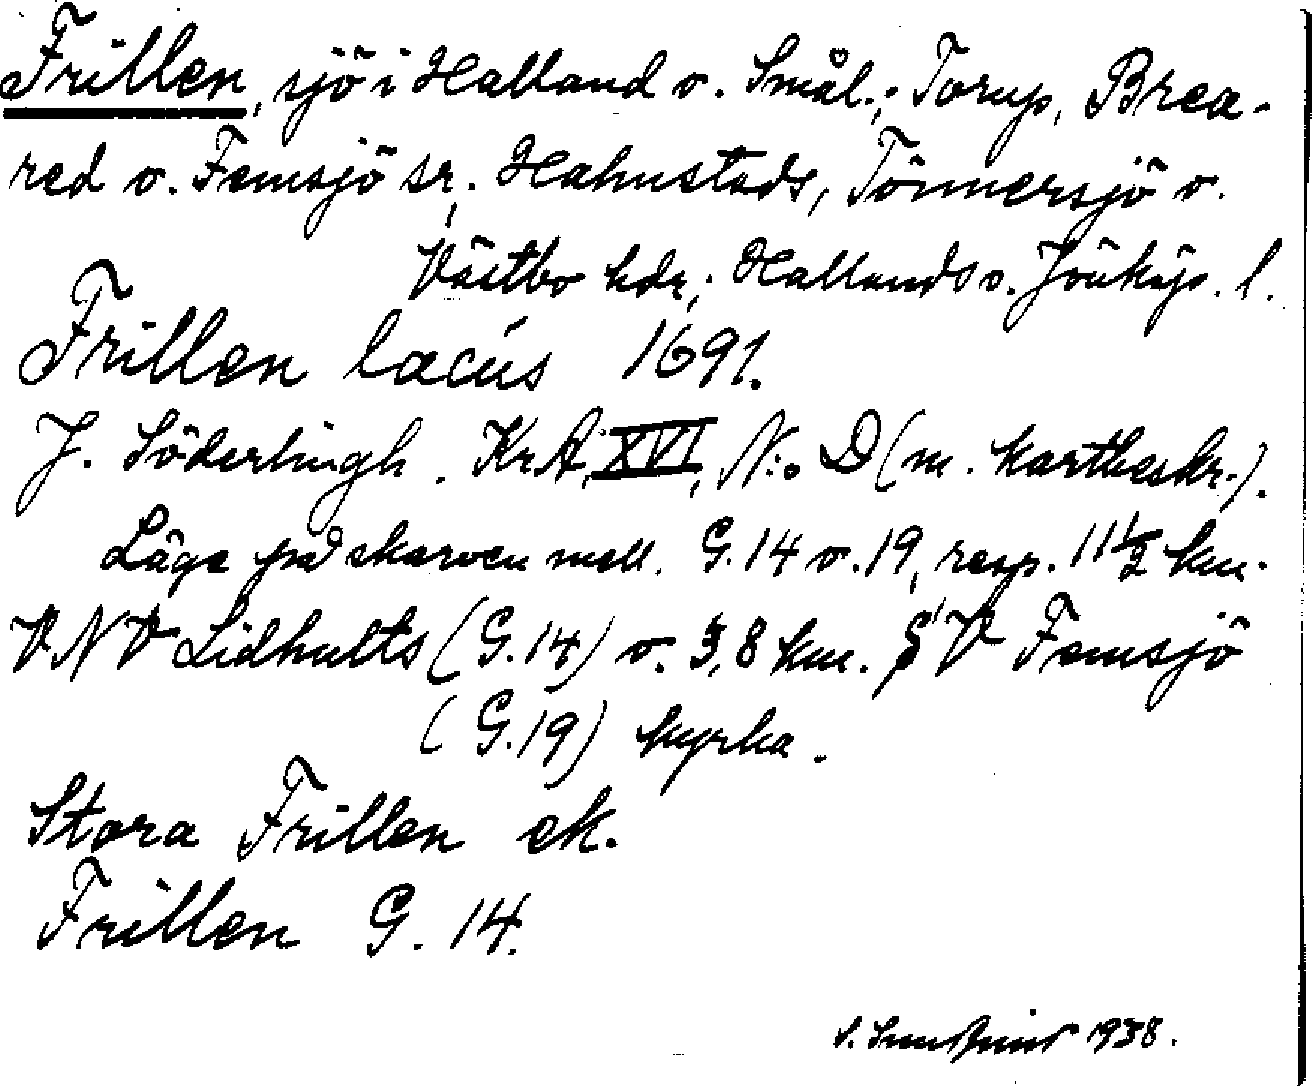 Frillen, sjö i Halland o. Smål.; Torup, Brea-
red o. Femsjö sr, Halmstads, Tönnersjö o.
Västbo hdr; Hallands o. Jönköp. l.
Frillen lacus 1691.
J. Söderlingh. KrA, XVI, N:o D (m. kartbeskr.).
Läge på skarven mell. G.14 o. 19, resp. 11 1/2 km.
VNV Lidhults (G.14) o. 3,8 km. SV Femsjö
(G.19) kyrka.
Stora Frillen ek.
Frillen G. 14.
1938.